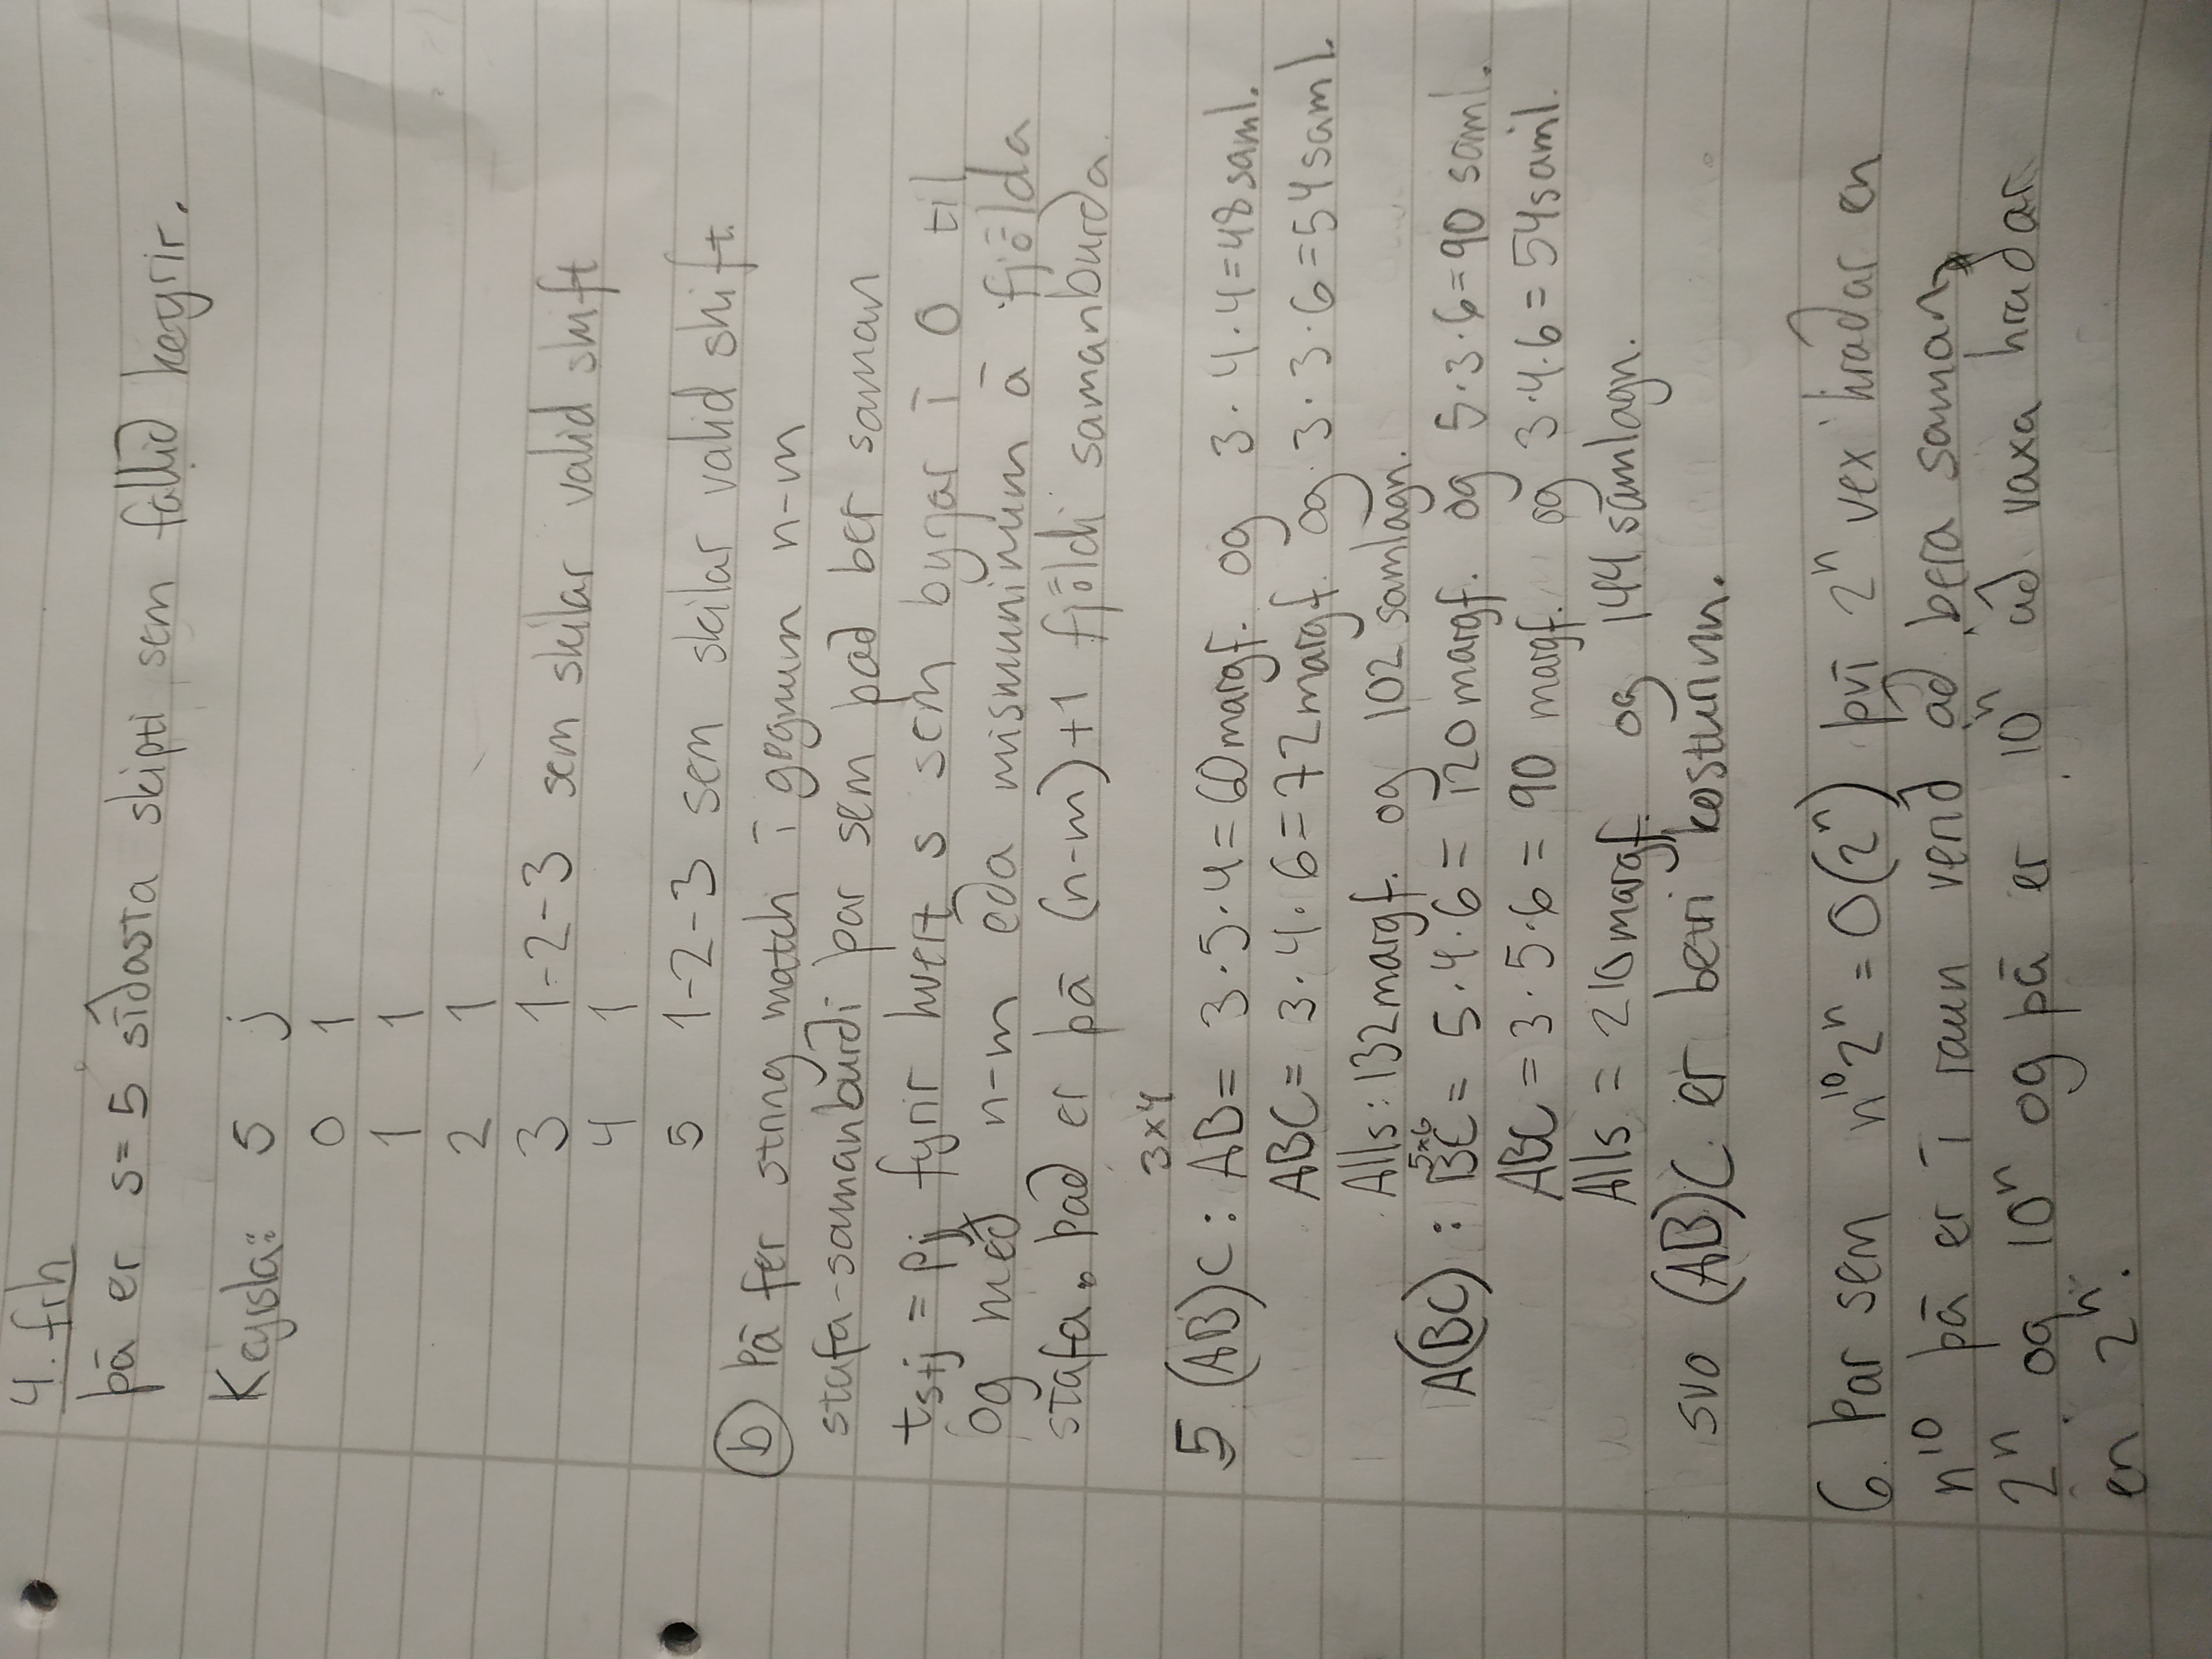 4. frh
þá er s=5 síðasta skipti sem fallið keyrir.
Keyrsla: S j
0 1
1 1
2 1
3 1-2-3 sem skilar valid shift
4 1
5 1-2-3 sem skilar valid shift.
b Þá fer string match í gegnum n-m
stafa-samanburði þar sem það ber saman
t_{s+j} = p_j fyrir hvert s sem byrjar í 0 til
og með n-m eða mismuninum á fjölda
stafa. Það er þá (n-m)+1 fjöldi samanburða.
3x4
5 (AB)C: AB = 3·5·4=60 margf. og 3·4·4=48 saml.
ABC = 3·4·6=72 margf. og 3·3·6=54 saml.
Alls: 132 margf. og 102 samlagn.
5x6
A(BC) : BC = 5·4·6 = 120 margf. og 5·3·6=90 saml.
ABC = 3·5·6 = 90 margf. og 3·4·6 = 54 saml.
Alls = 210 margf. og 144 samlagn.
svo (AB)C er betri kosturinn.
6. Þar sem n^{10}2^n = O(2^n) því 2^n vex hraðar en
n^{10} þá er í raun verið að bera saman
2^n og 10^n og þá er 10^n að vaxa hraðar
en 2^n.